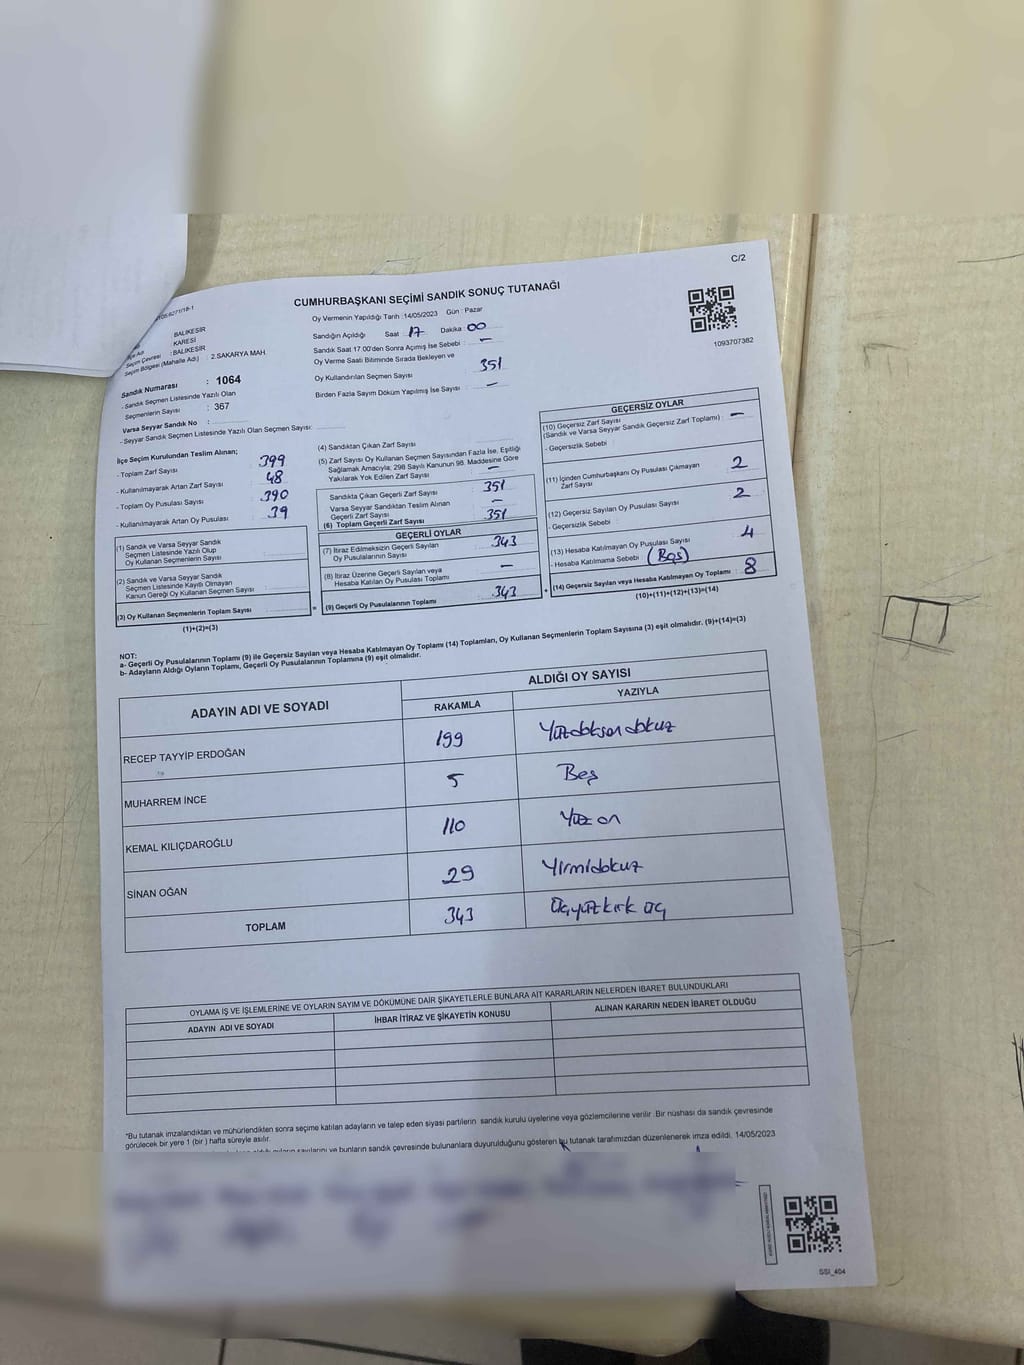 C/2
CUMHURBAŞKANI SEÇİMİ SANDIK SONUÇ TUTANAĞI
Oy Vermenin Yapıldığı Tarih :14/05/2023 Gün : Pazar
1093707382
BALIKESİR
KARESİ
İlçe Adı
Seçim Çevresi : BALIKESİR
Seçim Bölgesi (Mahalle Adı) : 2.SAKARYA MAH.
Sandık Numarası : 1064
- Sandık Seçmen Listesinde Yazılı Olan
Seçmenlerin Sayısı : 367
Varsa Seyyar Sandık No :
- Seyyar Sandık Seçmen Listesinde Yazılı Olan Seçmen Sayısı:
Sandığın Açıldığı Saat 17 Dakika 00
Sandık Saat 17.00'den Sonra Açımış İse Sebebi : —
Oy Verme Saati Bitiminde Sırada Bekleyen ve
Oy Kullandırılan Seçmen Sayısı 351
Birden Fazla Sayım Döküm Yapılmış İse Sayısı : —
İlçe Seçim Kurulundan Teslim Alınan;
- Toplam Zarf Sayısı 399
- Kullanılmayarak Artan Zarf Sayısı 48
- Toplam Oy Pusulası Sayısı 390
- Kullanılmayarak Artan Oy Pusulası 39
(1) Sandık ve Varsa Seyyar Sandık
Seçmen Listesinde Yazılı Olup
Oy Kullanan Seçmenlerin Sayısı
(2) Sandık ve Varsa Seyyar Sandık
Seçmen Listesinde Kayıtlı Olmayan
Kanun Gereği Oy Kullanan Seçmen Sayısı :
(3) Oy Kullanan Seçmenlerin Toplam Sayısı
(1)+(2)=(3)
(4) Sandıktan Çıkan Zarf Sayısı
(5) Zarf Sayısı Oy Kullanan Seçmen Sayısından Fazla İse, Eşitliği
Sağlamak Amacıyla; 298 Sayılı Kanunun 98. Maddesine Göre
Yakılarak Yok Edilen Zarf Sayısı —
Sandıkta Çıkan Geçerli Zarf Sayısı 351
Varsa Seyyar Sandıktan Teslim Alınan
Geçerli Zarf Sayısı —
(6) Toplam Geçerli Zarf Sayısı 351
GEÇERLİ OYLAR
(7) İtiraz Edilmeksizin Geçerli Sayılan
Oy Pusulalarının Sayısı 343
(8) İtiraz Üzerine Geçerli Sayılan veya
Hesaba Katılan Oy Pusulası Toplamı —
= (9) Geçerli Oy Pusulalarının Toplamı 343
GEÇERSİZ OYLAR
(10) Geçersiz Zarf Sayısı
(Sandık ve Varsa Seyyar Sandık Geçersiz Zarf Toplamı) : —
- Geçersizlik Sebebi
(11) İçinden Cumhurbaşkanı Oy Pusulası Çıkmayan
Zarf Sayısı 2
(12) Geçersiz Sayılan Oy Pusulası Sayısı 2
- Geçersizlik Sebebi
(13) Hesaba Katılmayan Oy Pusulası Sayısı 4
- Hesaba Katılmama Sebebi (Boş)
+ (14) Geçersiz Sayılan veya Hesaba Katılmayan Oy Toplamı 8
(10)+(11)+(12)+(13)=(14)
NOT:
a- Geçerli Oy Pusulalarının Toplamı (9) ile Geçersiz Sayılan veya Hesaba Katılmayan Oy Toplamı (14) Toplamları, Oy Kullanan Seçmenlerin Toplam Sayısına (3) eşit olmalıdır. (9)+(14)=(3)
b- Adayların Aldığı Oyların Toplamı, Geçerli Oy Pusulalarının Toplamına (9) eşit olmalıdır.
ADAYIN ADI VE SOYADI ALDIĞI OY SAYISI
RAKAMLA YAZIYLA
RECEP TAYYİP ERDOĞAN 199 Yüzdoksandokuz
MUHARREM İNCE 5 Beş
KEMAL KILIÇDAROĞLU 110 Yüz on
SİNAN OĞAN 29 Yirmidokuz
TOPLAM 343 Üçyüzkırk üç
OYLAMA İŞ VE İŞLEMLERİNE VE OYLARIN SAYIM VE DÖKÜMÜNE DAİR ŞİKAYETLERLE BUNLARA AİT KARARLARIN NELERDEN İBARET BULUNDUKLARI
ADAYIN ADI VE SOYADI İHBAR İTİRAZ VE ŞİKAYETİN KONUSU ALINAN KARARIN NEDEN İBARET OLDUĞU
*Bu tutanak imzalandıktan ve mühürlendikten sonra seçime katılan adayların ve talep eden siyasi partilerin sandık kurulu üyelerine veya gözlemcilerine verilir. Bir nüshası da sandık çevresinde
görülecek bir yere 1 (bir ) hafta süreyle asılır.
sayılarını ve bunların sandık çevresinde bulunanlara duyurulduğunu gösteren bu tutanak tarafımızdan düzenlenerek imza edildi. 14/05/2023
SSI_404